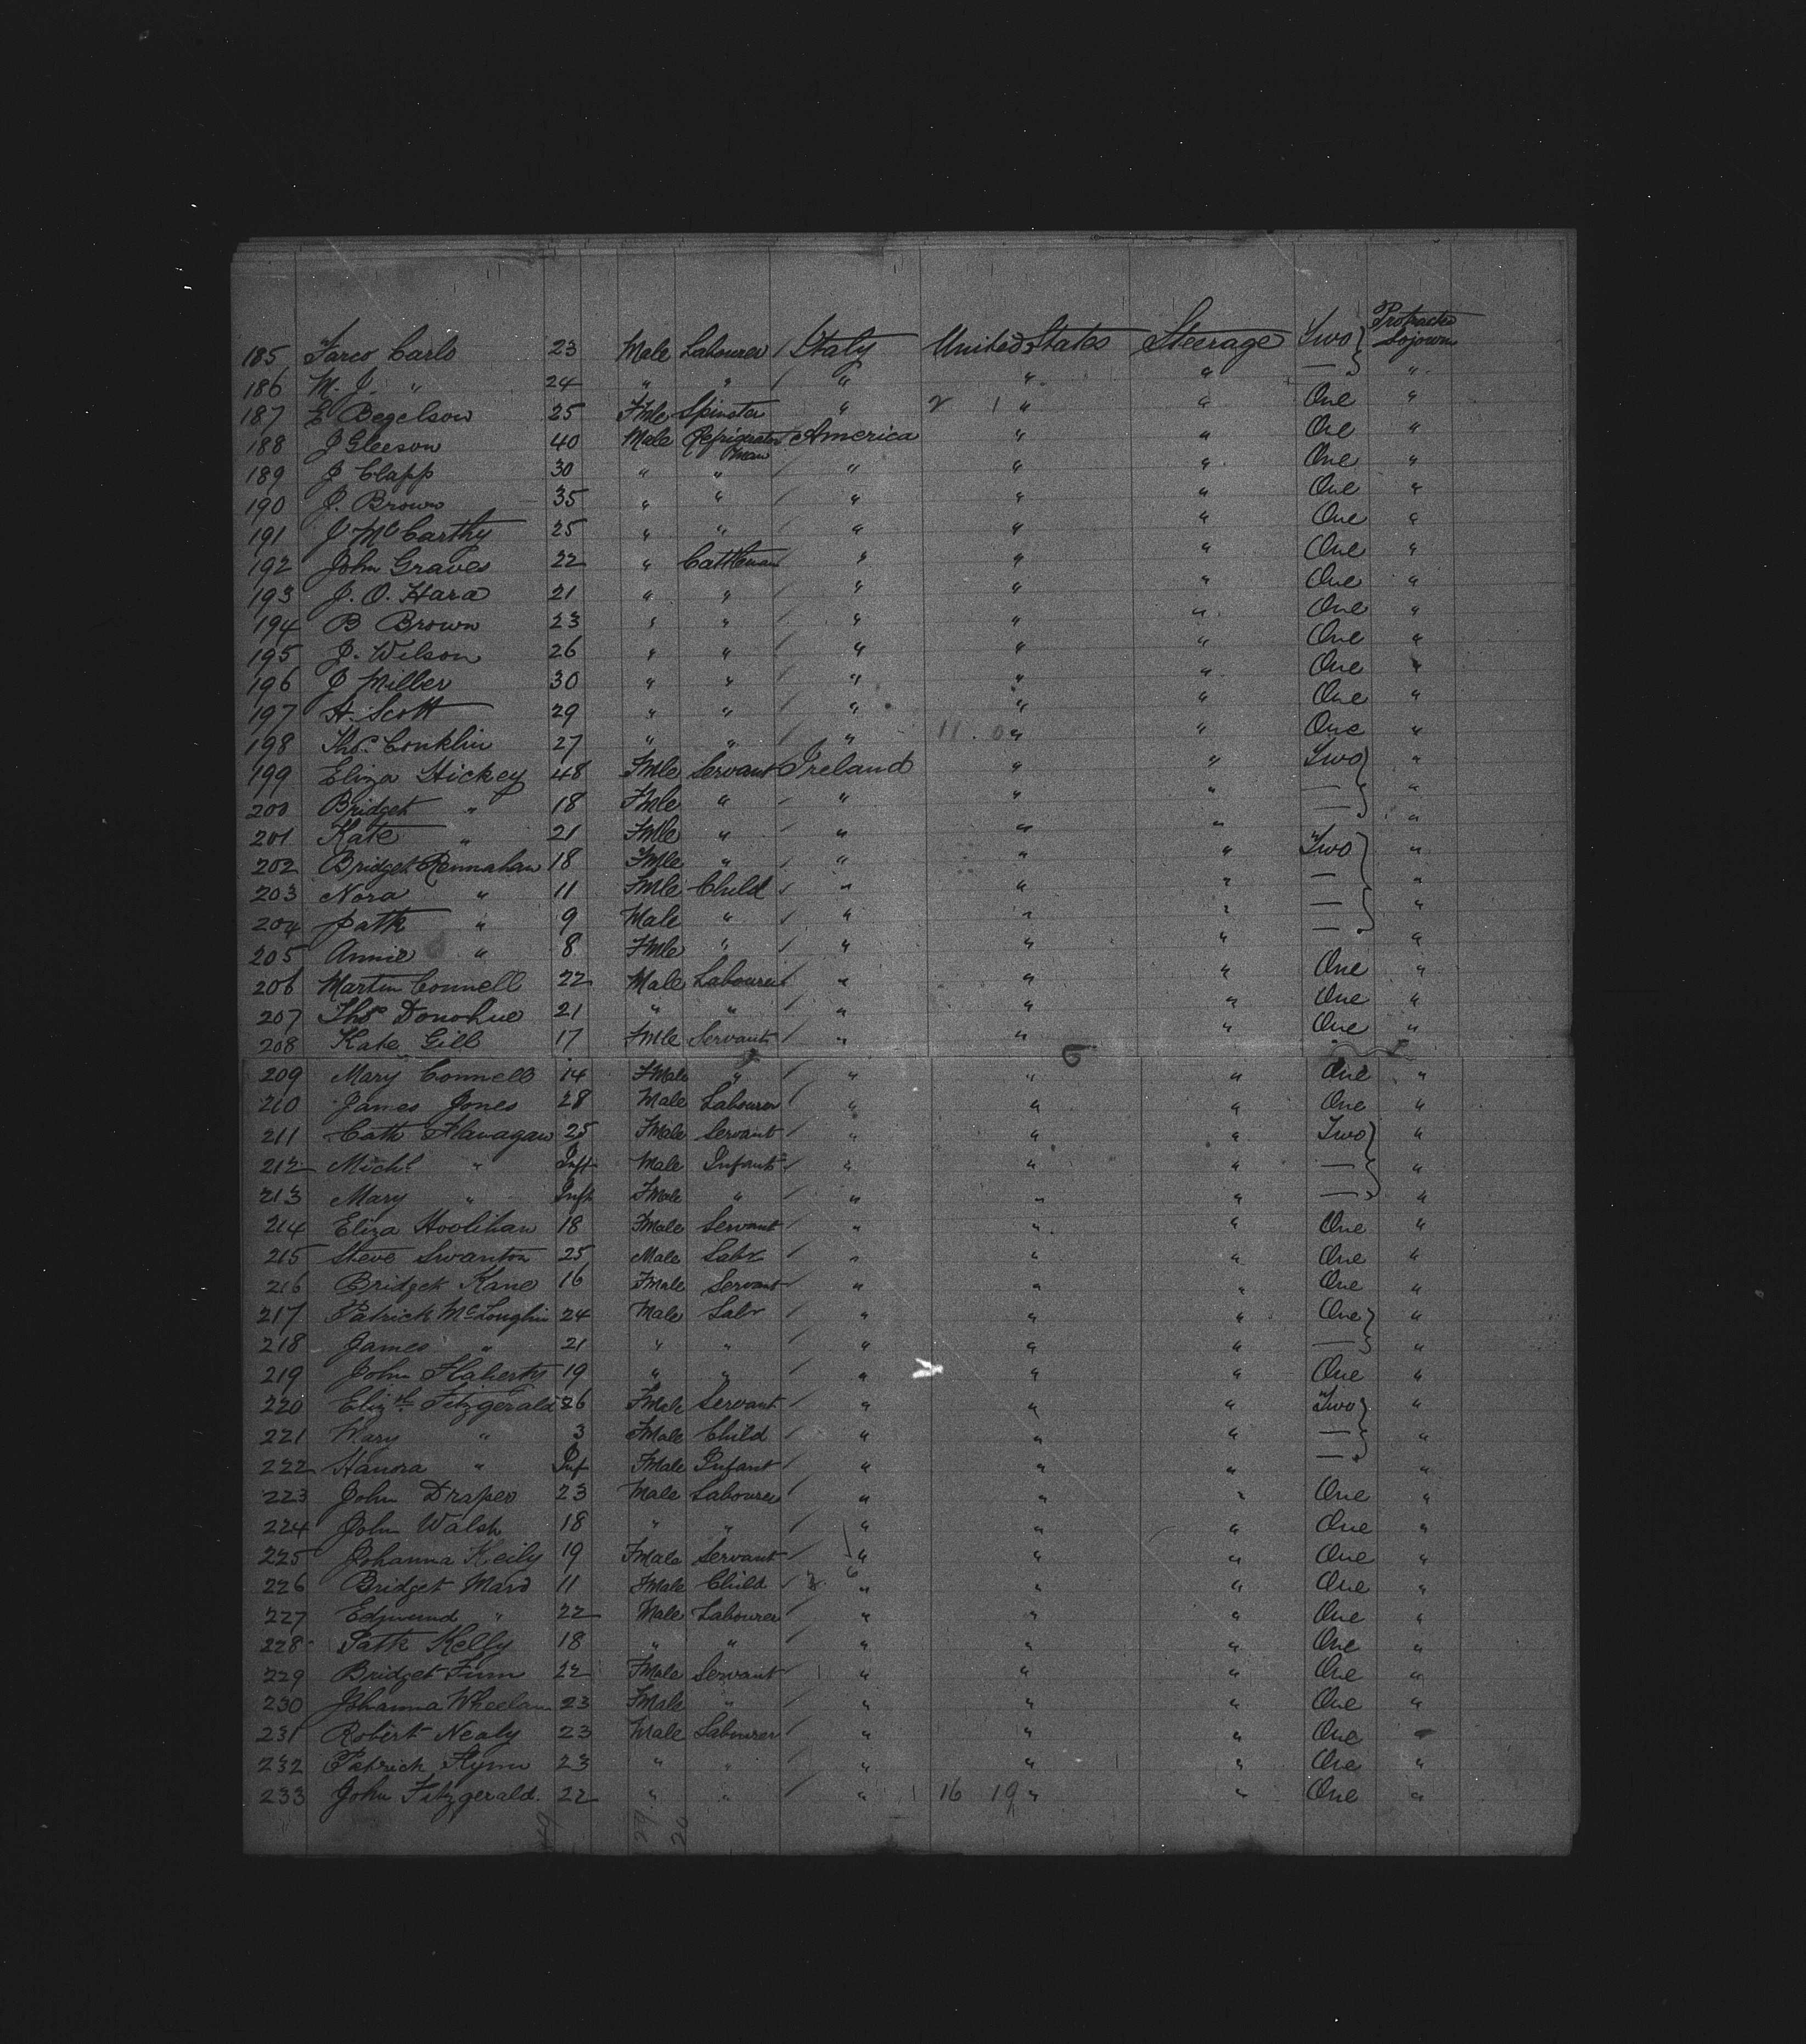 185 Farco Carlo 23 Male Labourer / Italy United States Steerage Two Protracted Sojourn
186 M. J. " 24 " " / " " " — "
187 E Begelson 25 Fmle Spinster " 2 1 " " One "
188 J Gleeson 40 Male Refrigerator man America " " One "
189 J Clapp 30 " " / " " " One "
190 J. Brown 35 " " / " " " One "
191 J McCarthy 25 " " / " " " One "
192 John Graves 22 " Cattleman / " " " One "
193 J. O. Hara 21 " " / " " " One "
194 B Brown 23 " " / " " " One "
195 J. Wilson 26 " " / " " " One "
196 J Milber 30 " " / " " " One "
197 H. Scott 29 " " / " " " One "
198 Thos. Conklin 27 " " / " 11 . 0 " " One "
199 Eliza Hickey 48 Fmle Servant Ireland " " Two "
200 Bridget " 18 Fmle " / " " " — "
201 Kate " 21 Fmle " / " " " — "
202 Bridget Rennahan 18 Fmle " / " " " Two "
203 Nora " 11 Fmle Child / " " " — "
204 Patk " 9 Male " / " " " — "
205 Annie " 8 Fmle " / " " " — "
206 Martin Connell 22 Male Labourer / " " " One "
207 Thos Donohue 21 " " / " " " One "
208 Kate Gill 17 Fmle Servant " " " One "
209 Mary Connell 14 FMale " / " " " One "
210 James Jones 28 Male Labourer / " " " One "
211 Cath Flanagan 25 FMale Servant / " " " Two "
212 Michl " Inft Male Infant / " " " — "
213 Mary " Inft FMale " / " " " — "
214 Eliza Hoolihan 18 FMale Servant / " " " One "
215 Steve Swanton 25 Male Labr / " " " One "
216 Bridget Kane 16 FMale Servant " " " One "
217 Patrick McLoughlin 24 Male Labr / " " " One "
218 James " 21 " " / " " " — "
219 John Flaherty 19 " " / " " " One "
220 Elizth Fitzgerald 26 FMale Servant / " " " Two "
221 Mary " 3 FMale Child / " " " — "
222 Hanora " Inf FMale Infant / " " " — "
223 John Draper 23 Male Labourer / " " " One "
224 John Walsh 18 " " / " " " One "
225 Johanna Keily 19 FMale Servant / " " " One "
226 Bridget Ward 11 FMale Child / 6 " " " One "
227 Edmund " 22 Male Labourer / " " " One "
228 Patk Kelly 18 " " / " " " One "
229 Bridget Finn 22 FMale Servant / " " " One "
230 Johanna Wheelan 23 FMale " / " " " One "
231 Robert Nealy 23 Male Labourer / " " " One "
232 Patrick Flynn 23 " " / " " " One "
233 John Fitzgerald. 22 " " / " 16 19 " " One "
49 29 20